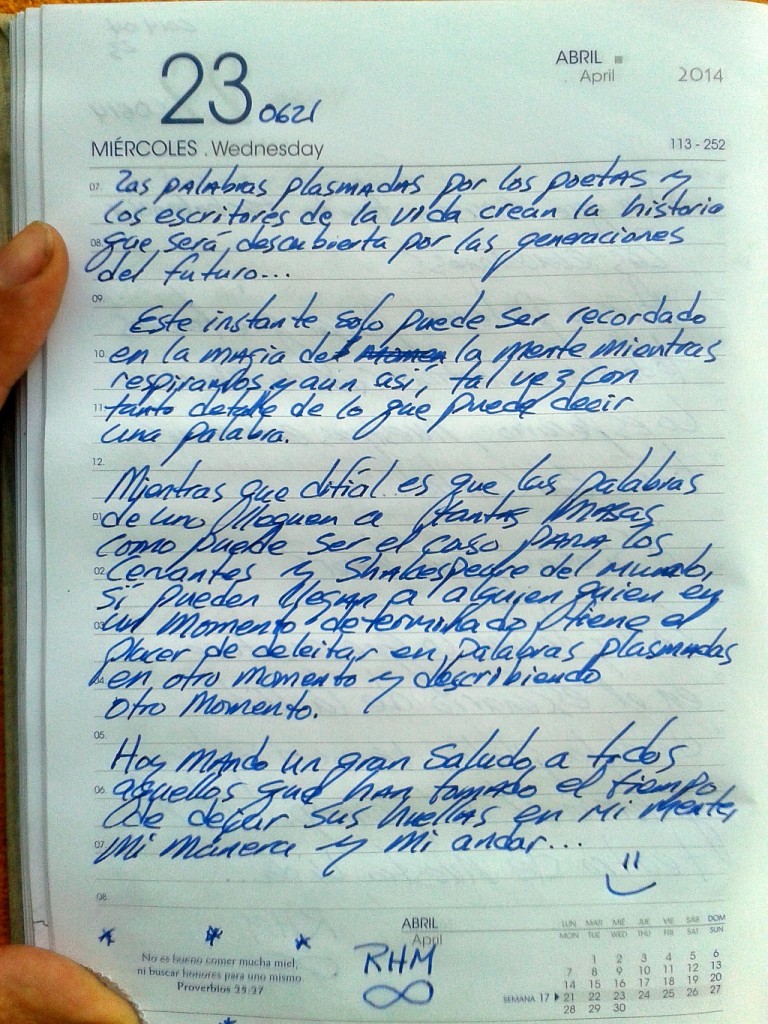 23 0621
ABRIL
April
2014
MIÉRCOLES . Wednesday
113 - 252
07. Las palabras plasmadas por los poetas y
los escritores de la vida crean la historia
08. que será descubierta por las generaciones
del futuro...
09.
Este instante solo puede ser recordado
10. en la magia de la mente mientras
respiramos y aun asi, tal vez con
11. tanto detalle de lo que puede decir
una palabra.
12.
Mientras que difícil es que las palabras
01. de uno lleguen a tantas masas
como puede ser el caso para los
02. Cervantes y Shakespeare del mundo,
si pueden llegar a alguien quien en
03. un momento determinado tiene el
placer de deleitar en palabras plasmadas
04. en otro momento y describiendo
otro momento.
05.
Hoy mando un gran saludo a todos
06. aquellos que han tomado el tiempo
de dejar sus huellas en mi mente,
07. mi manera y mi andar...
08.
No es bueno comer mucha miel,
ni buscar honores para uno mismo
Proverbios 25:27
ABRIL
April
RHM
LUN MAR MIÉ JUE VIE SÁB DOM
MON TUE WED THU FRI SAT SUN
1 2 3 4 5 6
7 8 9 10 11 12 13
14 15 16 17 18 19 20
SEMANA 17 21 22 23 24 25 26 27
28 29 30